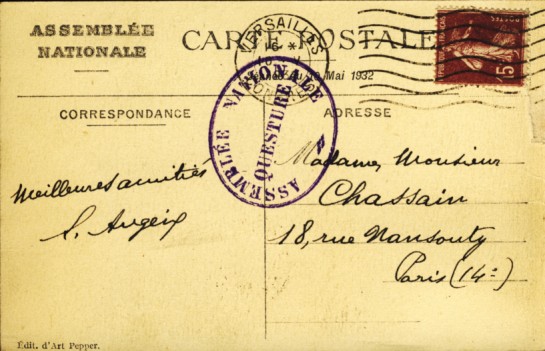 ASSEMBLÉE
NATIONALE
CARTE POSTALE
VERSAILLES
Mai 1932
ASSEMBLÉE NATIONALE
QUESTURE
CORRESPONDANCE
ADRESSE
Meilleures amitiés
Madame, Monsieur
Chassain
18, rue Nansouty
Paris (14e)
Édit. d'Art Pepper.